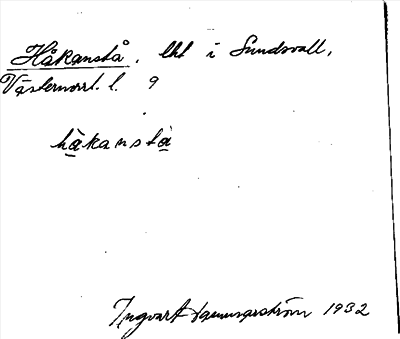 Håkanstå, lht i Sundsvall,
Västernorrl. l. 9
håkanstå
Ingvart 1932